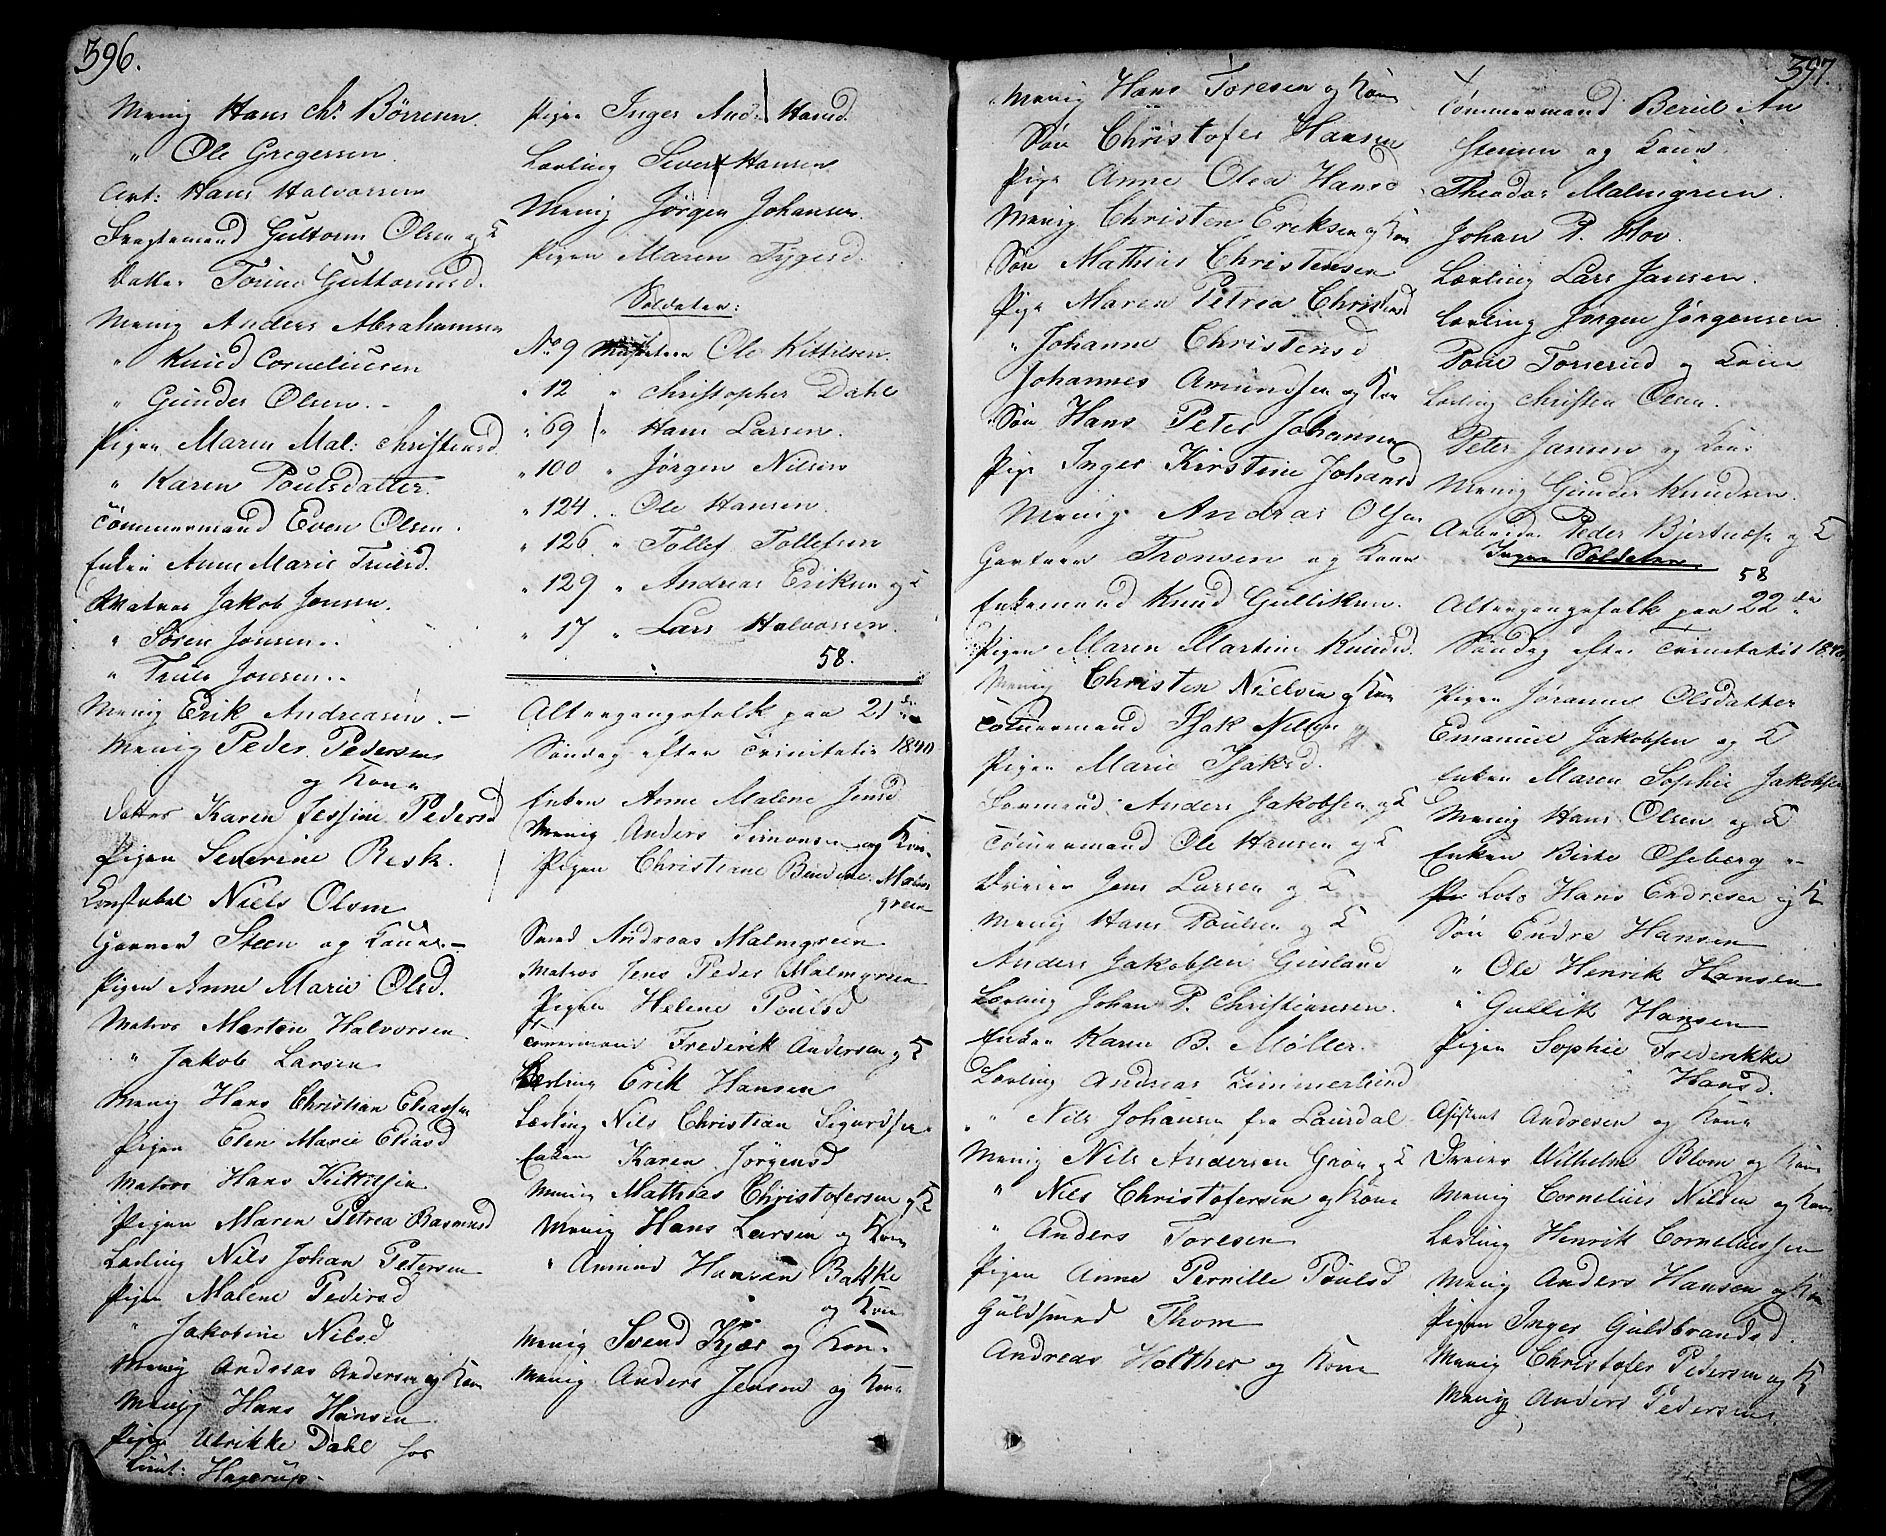 396.
Menig Hans Chr. Börresen.
" Ole Gregersen.
Art: Hans Halvorsen
Guttorm Olsen og K
Datter Torine Guttormsd.
Menig Anders Abrahamsen
" Knud Corneliusen
" Gunder Olsen. -
Pigen Maren Mal: Christensd
" Karen Poulsdatter.
Tömmermand Even Olsen.
Enken Anne Marie Trulsd.
Matros Jakob Jonsen.
" Sören Jonsen..
" Truls Jonsen..
Menig Erik Andreasen. -
Menig Peder Pedersen
og Kone
Datter Karen Jessine Pedersd
Pigen Severine Resk.
Constabel Niels Olsen
Garver Steen og Kone. -
Pigen Anne Marie Olsd.
Matros Morten Halvorsen
" Jakob Larsen
Menig Hans Christian Eliassen
Pigen Elen Marie Eliasd
Matros Hans Kittilsen
Pigen Maren Petrea Rasmusd
Lærling Nils Johan Petersen
Pigen Malene Pedersd
" Jakobine Nilsd
Menig Andreas Andersen og Kone
Menig Hans Hansen
Pige Ulrikke Dahl hos
Lieut: Hagerup-
Pigen Inger And. Hansd.
Lærling Sivert Hansen
Menig Jörgen Johansen.
Pigen Maren Tygesd.
Soldater:
No 9 Ole Kittilsen.
" 12 " Christopher Dahl
" 69 " Hans Larsen.
" 100 " Jörgen Nilsen
" 124 .. Ole Hansen
" 126 " Tollef Tollefsen
" 129 " Andreas Eriksen og K
" 17 " Lars Halvorsen.
58.
Altergangsfolk paa 21de
Söndag efter Trinitatis 1840
Enken Anne Malene Jensd
Menig Anders Simonsen og Kone
Pigen Christiane Malm
green
Smed Andreas Malmgreen
Matros Jens Peder Malmgreen
Pigen Helene Poulsd
Tömmermand Frederik Andersen og K
Lærling Erik Hansen
Lærling Nils Christian Sigurdsen
Enken Karen Jörgensd
Menig Mathias Christofersen og K
Menig Hans Larsen og Kone
" Amund Hansen Bakke
og Kone
Menig Svend Kjær og Kone
Menig Anders Jensen og Kone
397.
Menig Hans Toresen og Kone
Sön Christofer Hansen
Pige Anne Olea Hansd
Menig Christen Eriksen og Kone
Sön Mathias Christensen
Pige Maren Petrea Christensd
" Johanne Christensd
Johannes Amundsen og Kone
Sön Hans Peter Johansen
Pige Inger Kirstine Johansd
Menig Andreas Olsen
Gartner Tronsen og Kone
Enkemand Knud Gulliksen.
Pigen Maren Martine Knudsd.
Menig Christen Nielsen og Kone
Tömmermand Isak Nilsen
Pigen Marie Isaksd.
Formand Anders Jakobsen og K
Tömmermand Ole Hansen og K
Dreier Jens Larsen og K
Menig Hans Poulsen og K
Anders Jakobsen Gusland
Lærling Johan P. Christiansen.
Enken Karen B. Møller.
Lærling Andreas Zimmerlund
" Nils Johansen fra Laurdal
Menig Nils Andersen Grön og K
" Niels Christofersen og Kone
" Anders Toresen
Pigen Anne Pernille Poulsd
Guldsmed Thom
Andreas Holther og Kone
Tömmermand Berul An
stensen og Kone.
Theodor Malmgreen.
Johan P. Hov.
Lærling Lars Jansen.
Lærling Jörgen Jörgensen
Poul Torrerud og Kone
Lærling Christen Olsen
Peter Jansen og Kone
Menig Gunder Knudsen.
Arbeider Peder Bjertnæs og K
Ingen Soldater.
58
Altergangsfolk paa 22de
Söndag efter Trinitatis 1840
Pigen Joranne Olsdatter
Emanuel Jakobsen og K
Enken Maren Sophie Jakobsen
Menig Hans Olsen og K
Enken Birte Oseberg -
Lots Hans Endresen og K
Sön Endre Hansen
" Ole Henrik Hansen
" Gullik Hansen
Pigen Sophie Frederikke
Hansd.
Assistent Andresen og Kone
Dreier Wilhelm Blom og Kone
Menig Cornelius Nilsen og Kone
Lærling Henrik Corneliussen
Menig Anders Hansen og Kone
Pigen Inger Guldbrandsd.
Menig Christofer Pedersen og K
Menig Anders Pedersen